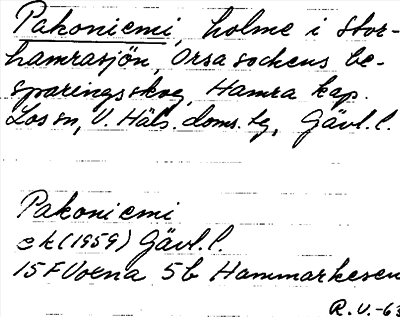 Pakoniemi, holme i Stor-
hamrasjön, Orsa sockens be-
sparingsskog, Hamra kap.
Los sn, V. Häls. doms. tg, Gävl. l.
Pakoniemi
ek (1959) Gävl. l.
15F Voxna 5b Hammarkesen
R. V. -63